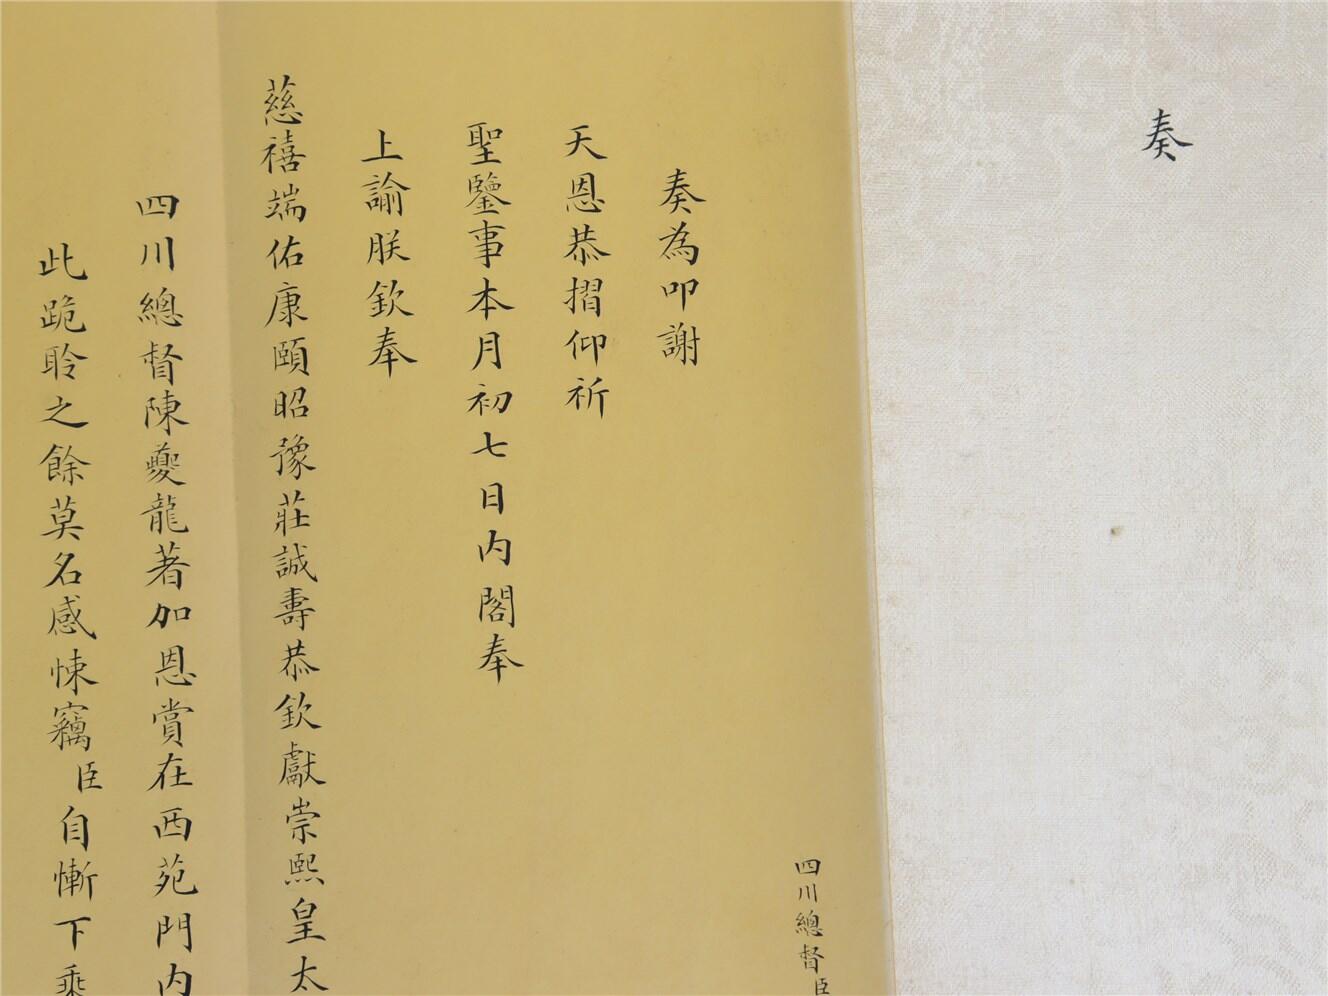 奏
四川總督臣
奏為叩謝
天恩恭摺仰祈
聖鑒事本月初七日内閣奉
上諭朕欽奉
慈禧端佑康頤昭豫莊誠壽恭欽獻崇熙皇太
四川總督陳夔龍著加恩賞在西苑門内
此跪聆之餘莫名感悚竊臣自慚下乘